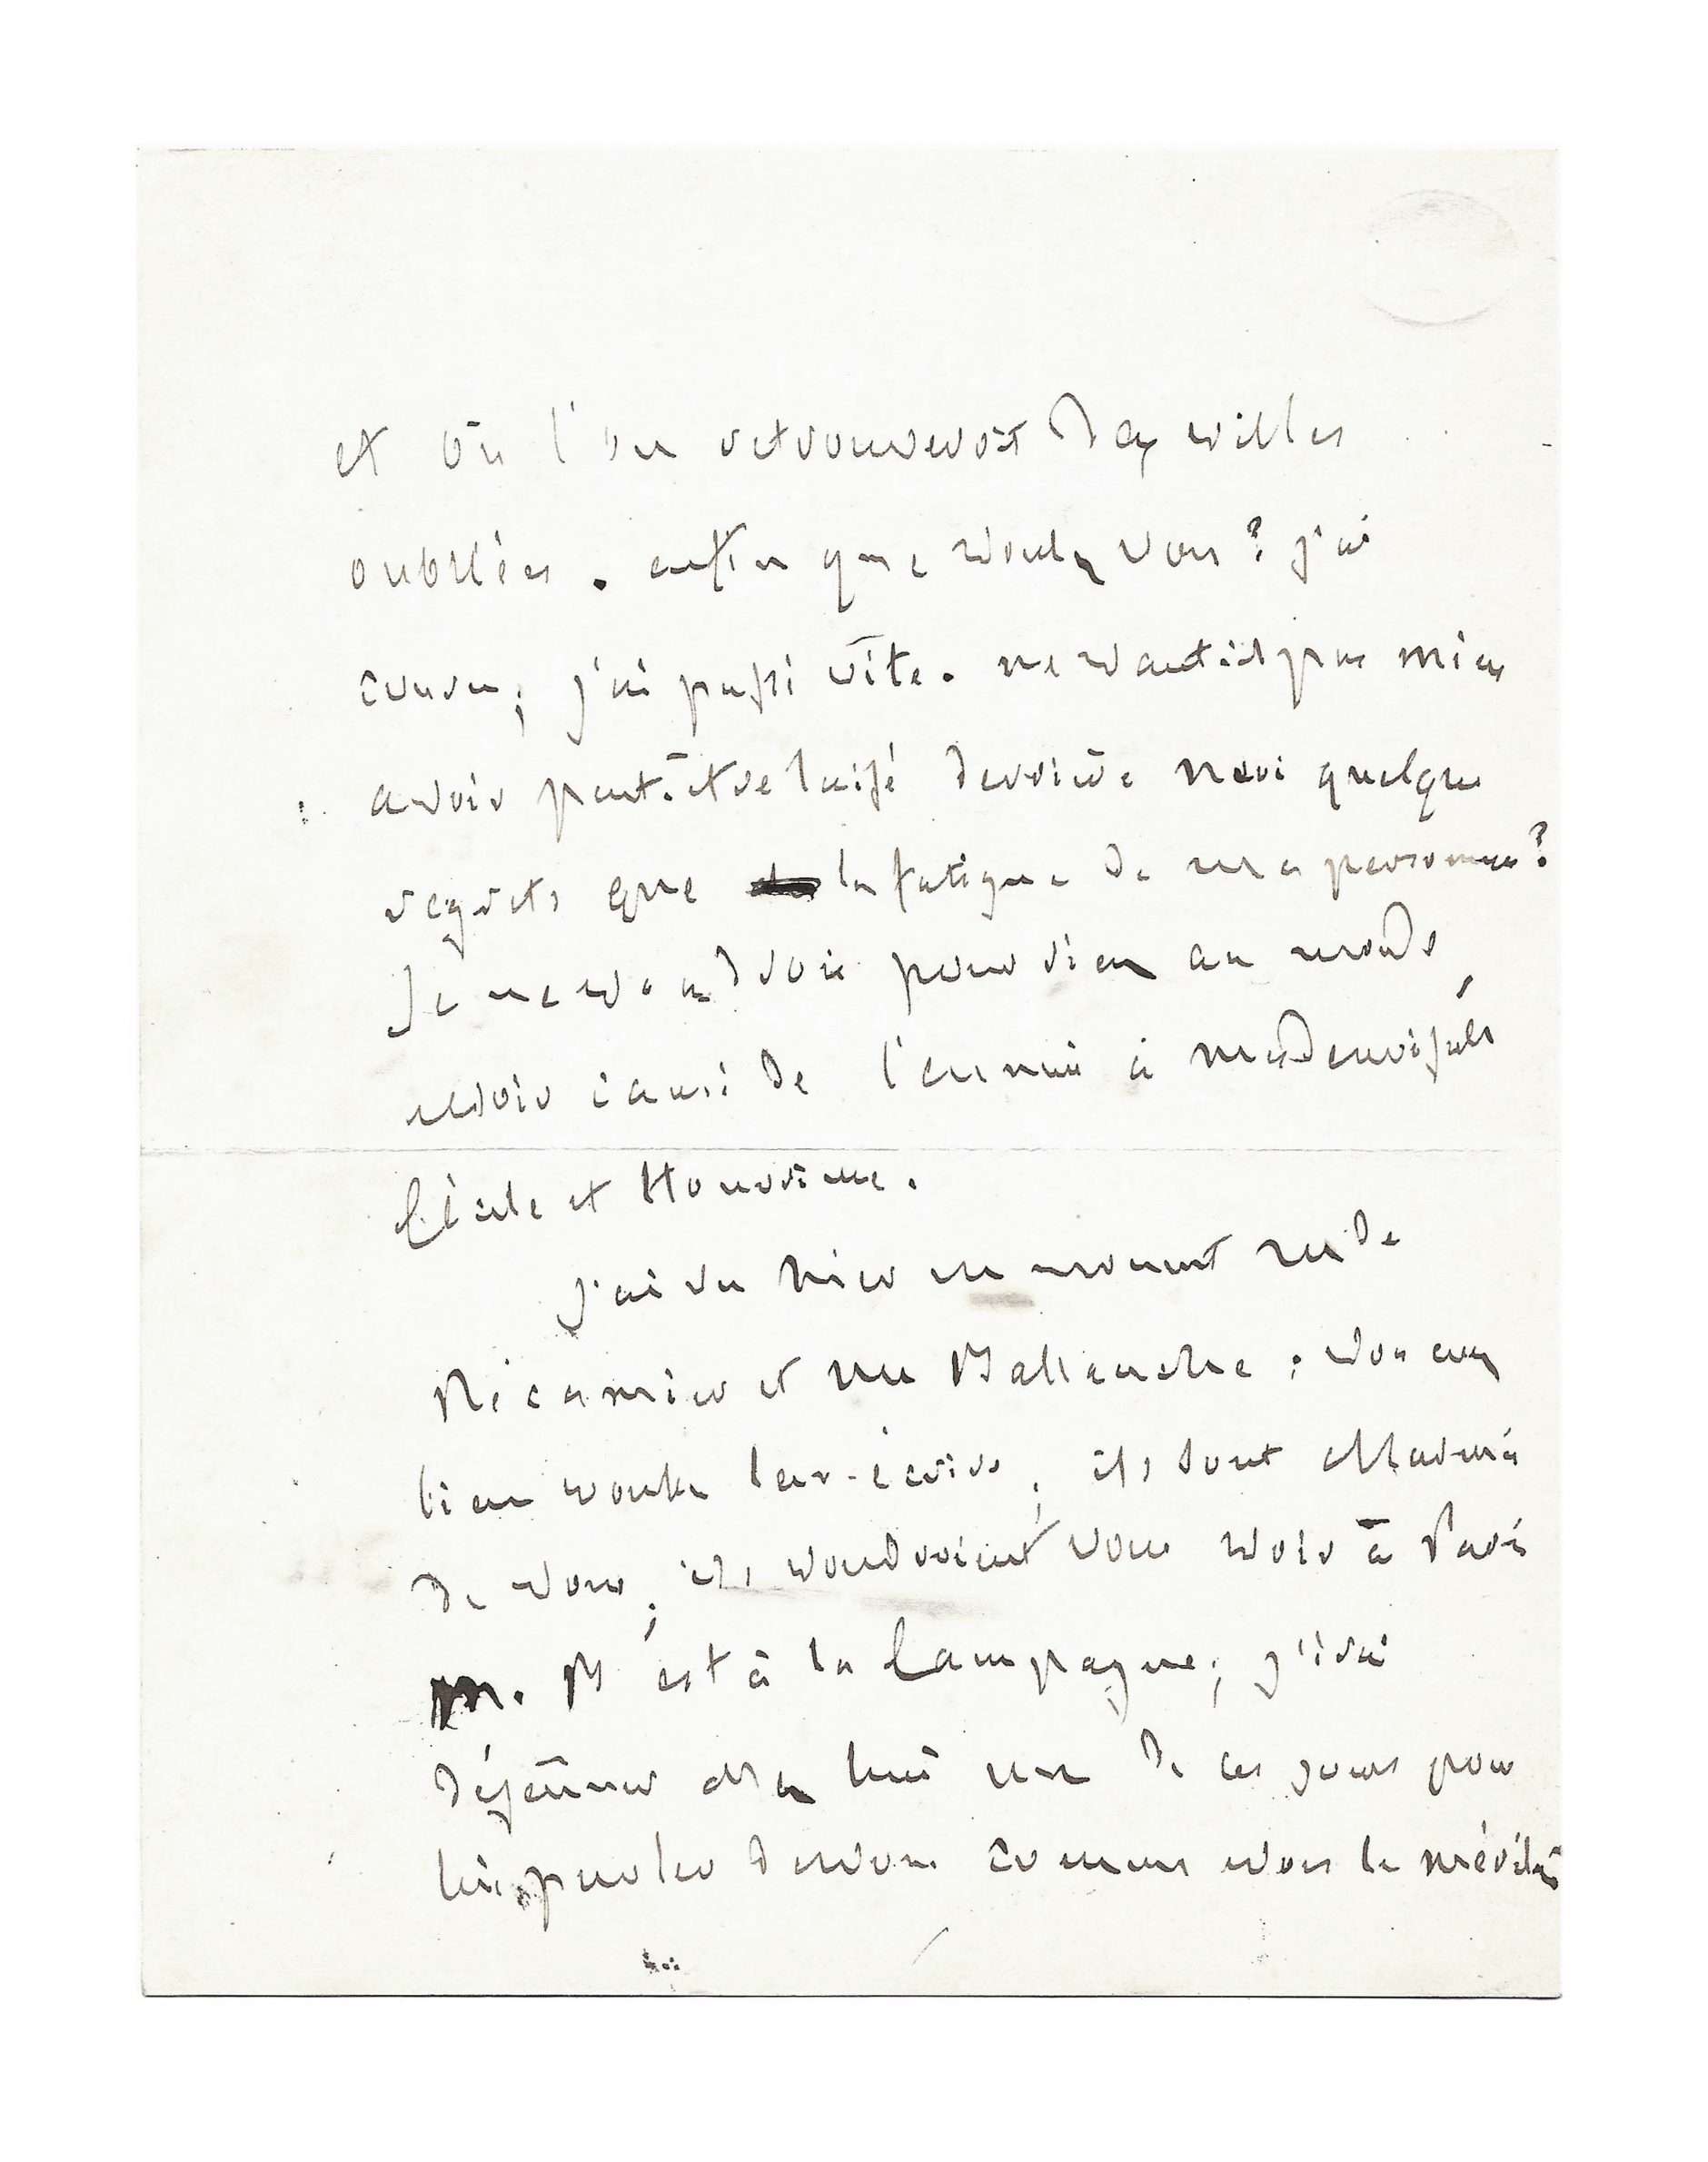 et où l'on retrouveroit des villes
oubliées. enfin que voulez vous? j'ai
couru; j'ai passé vîte. ne vaut il pas mieux
avoir peut-être laissé derrière moi quelques
regrets que la fatigue de ma personne?
Je ne voudrois pour rien au monde
avoir causé de l'ennui à mesdemoiselles
Cécile et Honorine.
J'ai vu hier un moment Mde
Récamier et Mr Ballanche: vous avez
bien voulu leur écrire; ils sont charmés
de vous; ils voudroient vous voir à Paris
M. B est à la Campagne; j'irai
déjeûner chez lui un de ces jours pour
lui parler de vous comme vous le méritez